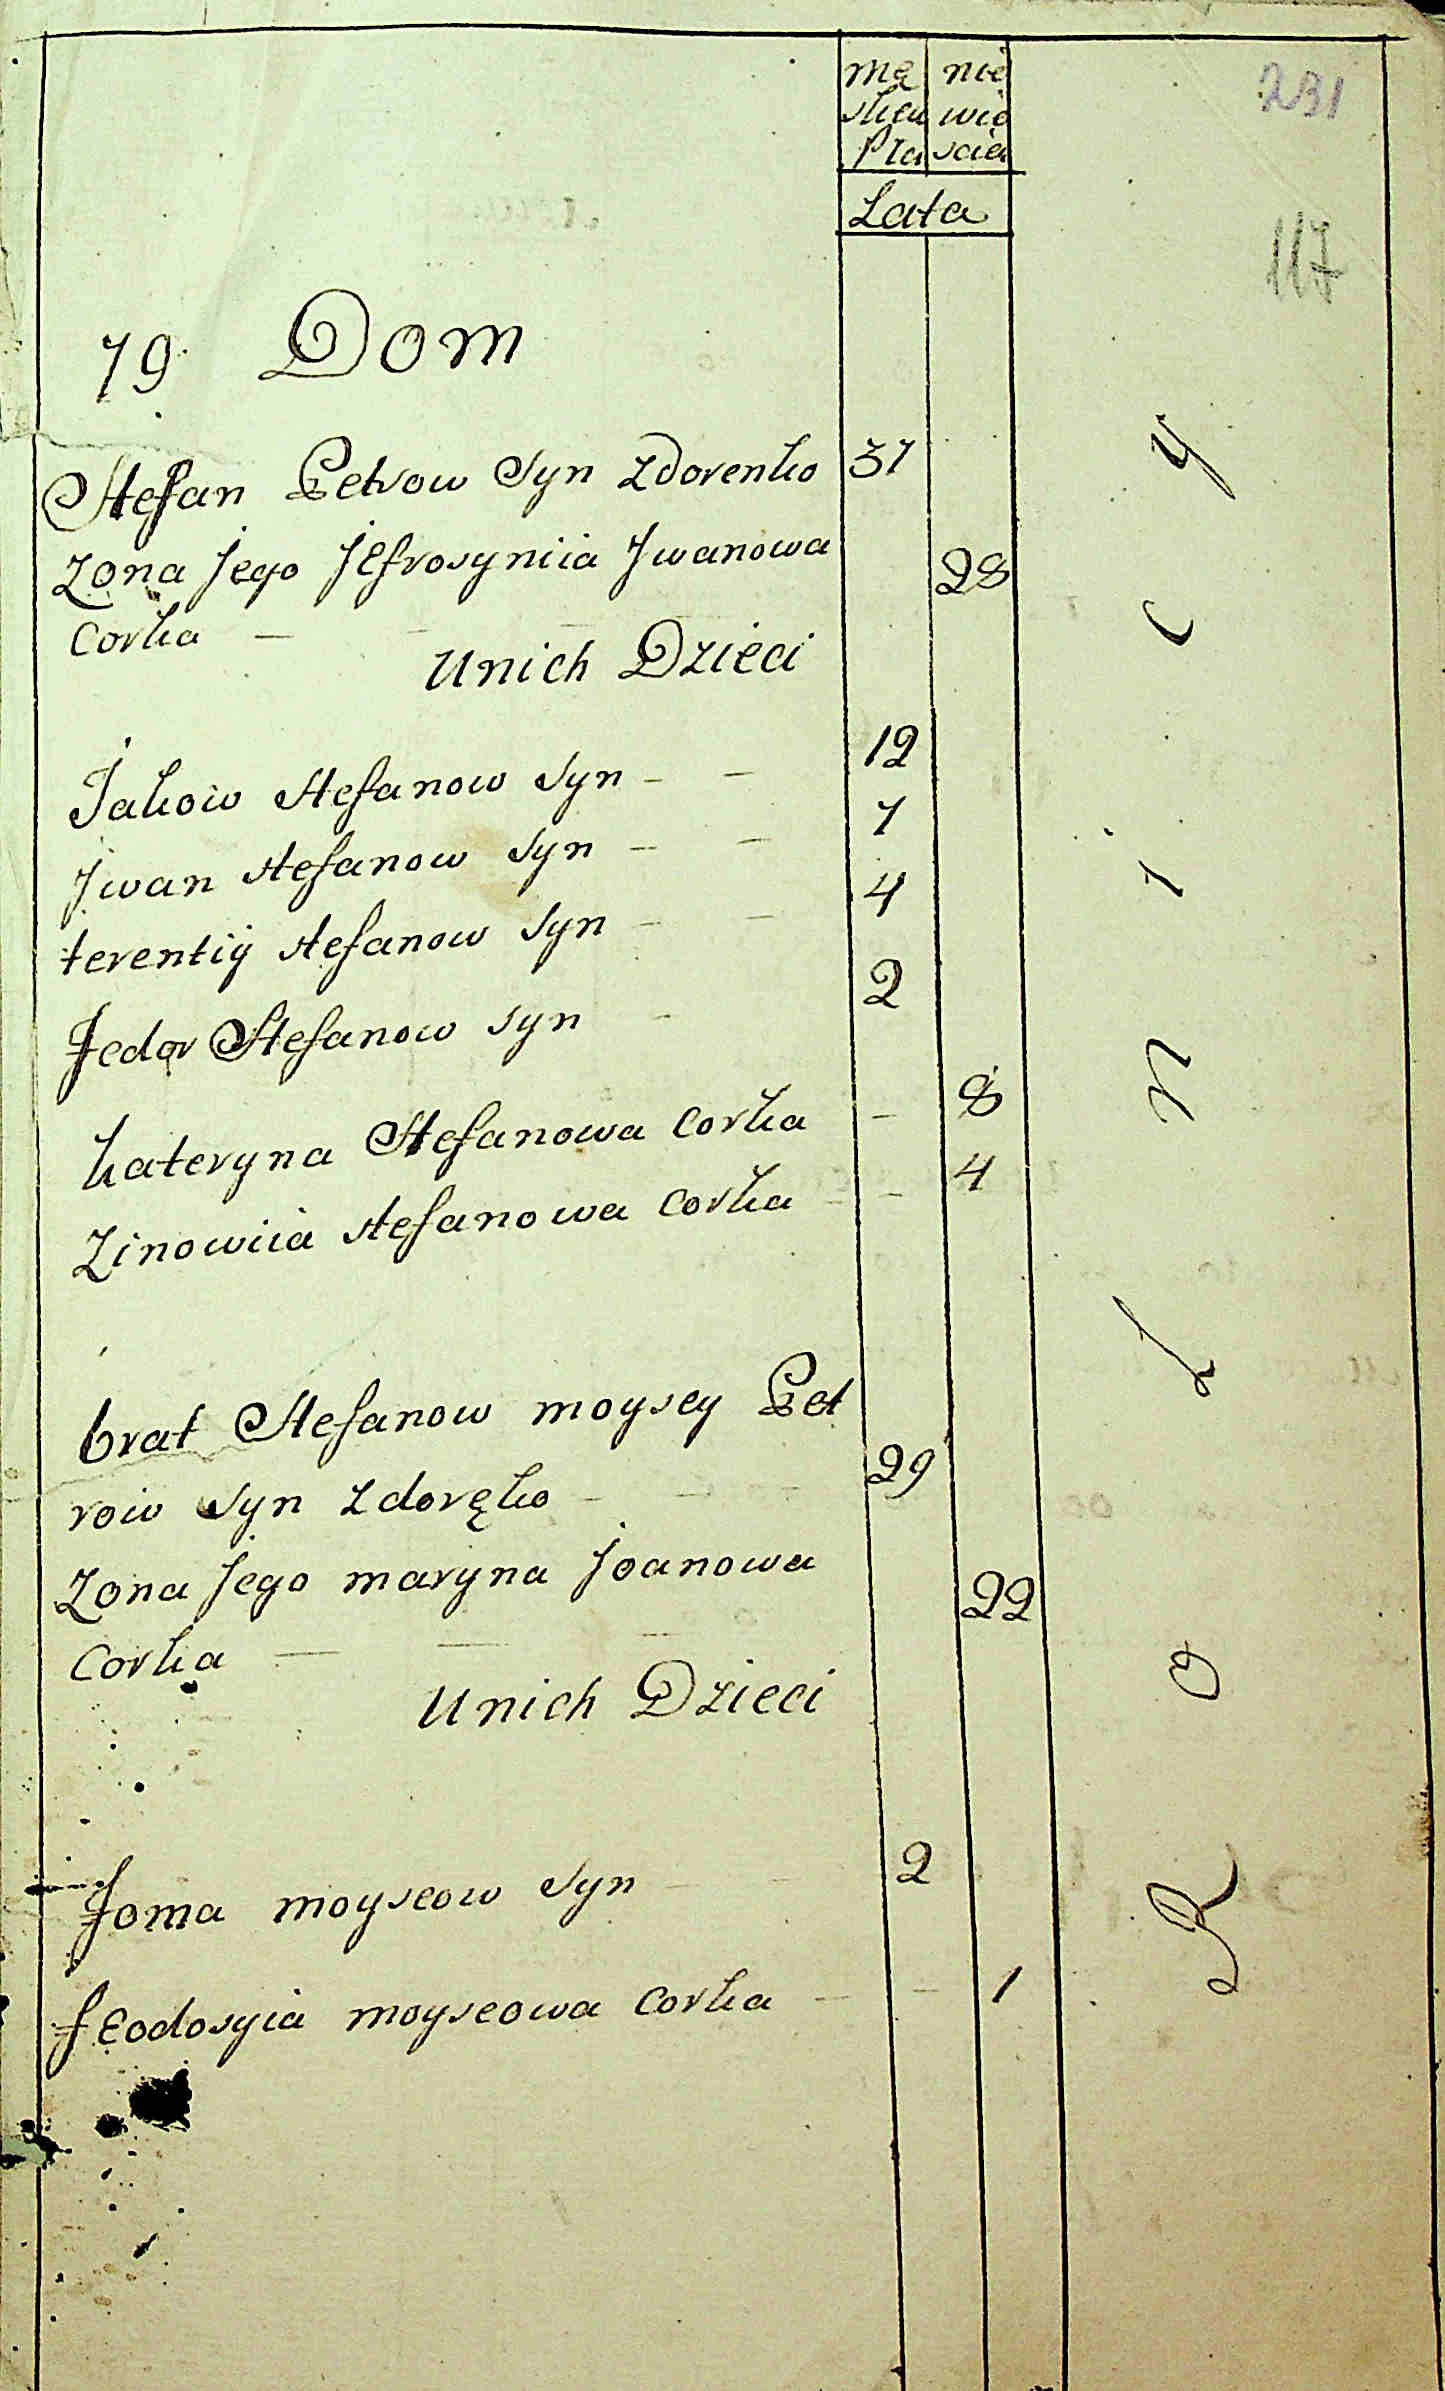 mę nie
skie wie
Płci scia
231
Lata
117
79 Dom
Stefan Petrow Syn Zdorenko 37
Zona Jego Jefrosyniia Jwanowa 28
Corka —
Unich Dzieci
Jakow Stefanow Syn - - 12
Jwan Stefanow Syn - - 7
terentiy Stefanow Syn - - 4
Fedor Stefanow Syn - 2
kateryna Stefanowa Corka - 8
Zinowiia Stefanowa Corka - 4
brat Stefanow moysey Pet
row Syn Zdoręko - - 29
Zona Jego maryna Joanowa 22
Corka — — —
Unich Dzieci
Foma moyseow Syn 2
feodosyia moyseowa Corka — - 1
Rolnicy